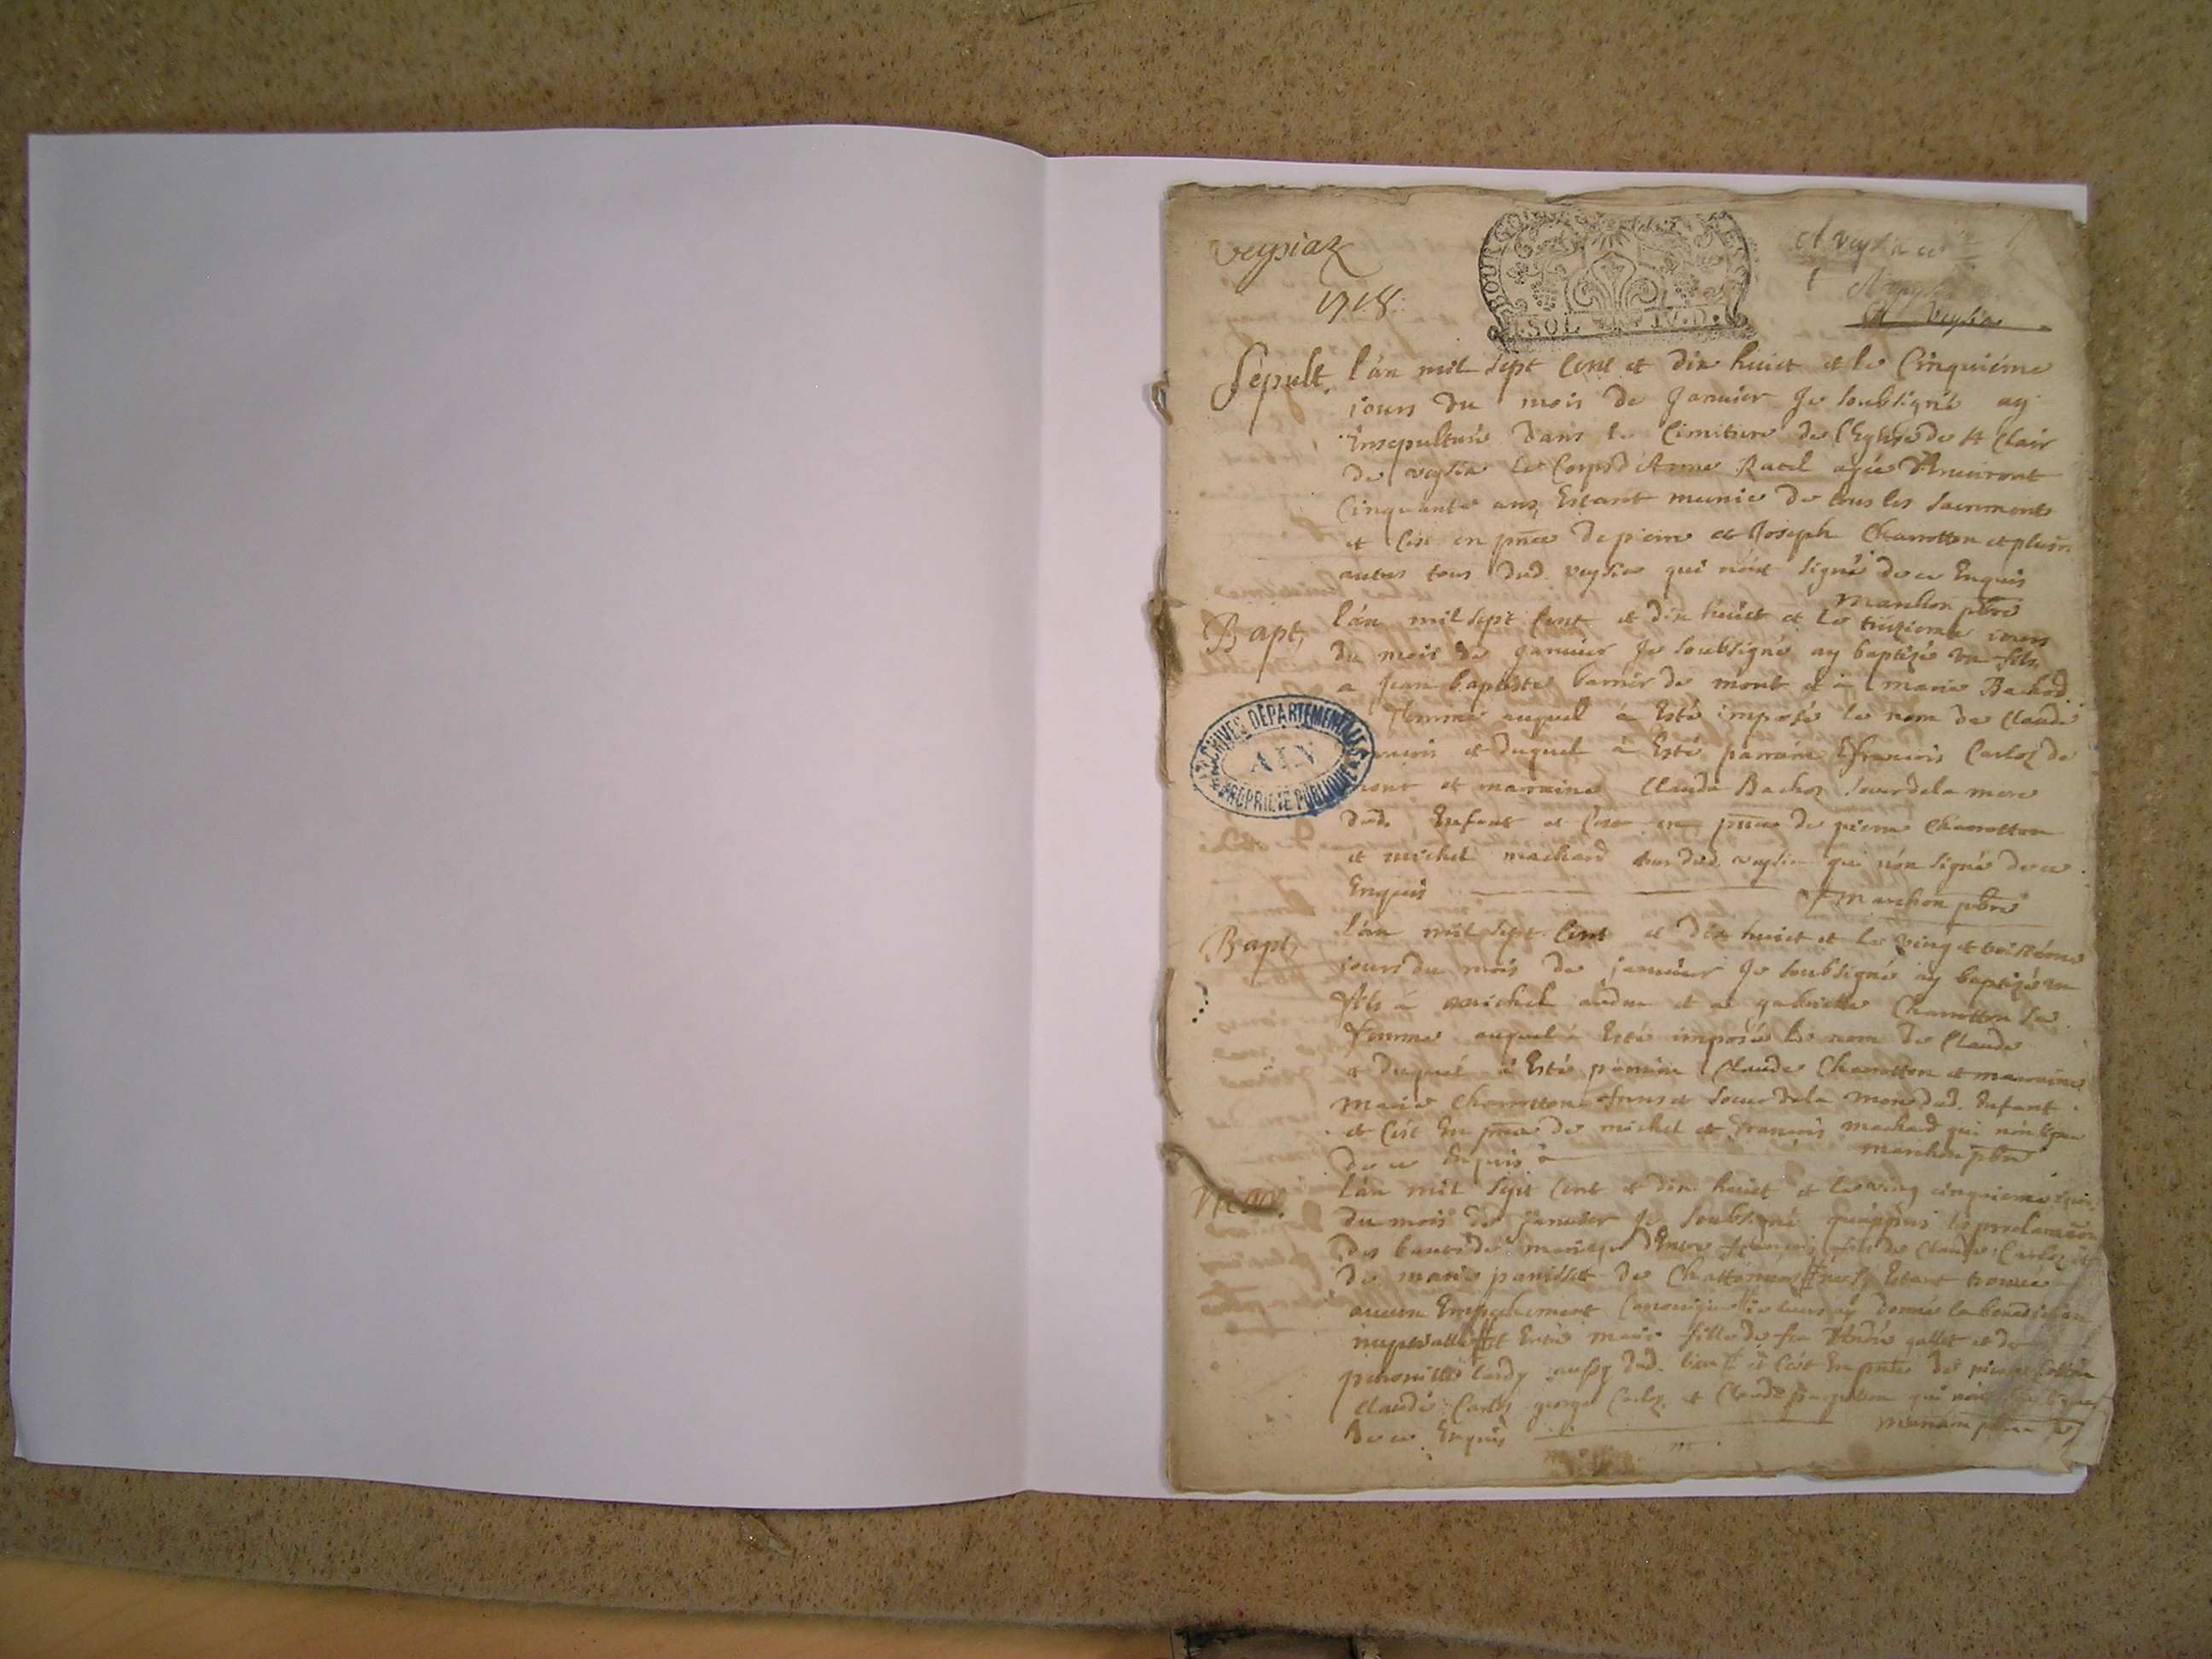 Veysiaz
1718.
BOURGO
1. SOL IV. D.
A veysia
A Veysia
Sepult. l'an mil sept Cent et dix huict et le Cinquiéme
jours du mois de Januier Je soubsigné ay
Insepulturé dans le Cimitiere de l'Eglise de St Clair
de veysia le Corps d'Anne Ratel agée d'Enuiront
Cinquante ans, Estant munie de tous les sacrements
et C'est en pñce de pierre et Joseph Charrotton et plusrs
autres tous dud. veysia qui n'ont signé de ce Enquis
marchon pbre
Bapt, l'an mil sept Cent et dix huict et le treizieme jours
du mois de januier Je soubsigné ay baptizé un fils
a Jean baptiste barnier de mont et à marie Bachod
femme auquel à Esté imposé le nom de Claude
francois et duquel à Esté parrain francois Carloz de
mont et marraine Clauda Bachoz soeur de la mere
dud. Enfant et C'est en pñce de pierre Charrotton
et michel machard tous dud. veysia qui n'on signé de ce
Enquis marchon pbre
Bapt, l'an mil sept Cent et dix huict et le vingt troisiéme
jours du mois de januier Je soubsigné ay baptizé un
fils à michel et a gabrielle Charrotton sa
femme auquel à Esté imposé le nom de Claude
et duquel à Esté parrain Claude Charrotton et marraine
marie Charrotton frere et soeur de la mere dud. Enfant
et C'est En pñce de michel et francois machard qui n'on signé
de ce Enquis marchon pbre
Mar. l'an mil sept Cent et dix huict et le ving cinquieme jours
du mois de januier Je soubsigné qu'appres les proclamaõns
des bancs de mariage d'Entre francois fils de Claude Carloz et
de marie panisset de Estant trouué
aucun Empechement Canonique je leurs ay donné la benediction
nuptialle et Entre marie fille de feu André gallet et de
peronitte lardy aussy dud. lieu et C'est En pñce de pierre
claude Carloz george Carloz et Claude qui n'ont signé
de ce Enquis
ARCHIVES DÉPARTEMENTALES
AIN
PROPRIÉTÉ PUBLIQUE